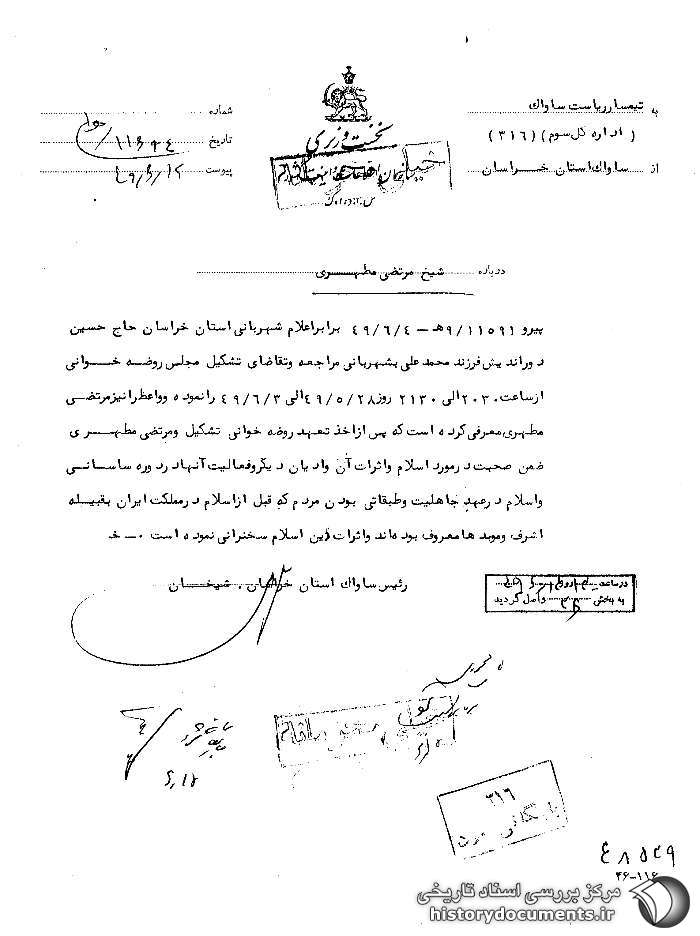 به تیمسار ریاست ساواک
(اداره کل سوم) (۳۱۶)
از ساواک استان خراسان
نخست وزیری
س.ا.و.ا.ک
شماره
تاریخ ۱۱۶۹۰۴/هـ۱
پیوست ۴۹/۶/۱۲
درباره شیخ مرتضی مطهری
پیرو ۹/۱۱۵۹۱هـ - ۴۹/۶/۴ برابر اعلام شهربانی استان خراسان حاج حسین
دوراندیش فرزند محمدعلی بشهربانی مراجعه وتقاضای تشکیل مجلس روضه خوانی
از ساعت ۲۰۳۰ الی ۲۱۳۰ روز ۴۹/۵/۲۸ الی ۴۹/۶/۳ را نموده وواعظ را نیز مرتضی
مطهری معرفی کرده است که پس از اخذ تعهد روضه خوانی تشکیل ومرتضی مطهری
ضمن صحبت در مورد اسلام واثرات آن وادیان دیگر وفعالیت آنها در دوره ساسانی
واسلام در عهد جاهلیت وطبقاتی بودن مردم که قبل از اسلام در مملکت ایران بقبیله
اشرف وموبد ها معروف بوده اند واثرات دین اسلام سخنرانی نموده است ۰ـ خ
رئیس ساواک استان خراسان . شیخان
در ساعت
به بخش ۳۱۶ واصل گردید
۶/۱۲
۳۱۶
بایگانی
۴۸۵۴۹
۴۶-۱۱۶
مرکز بررسی اسناد تاریخی
historydocuments.ir